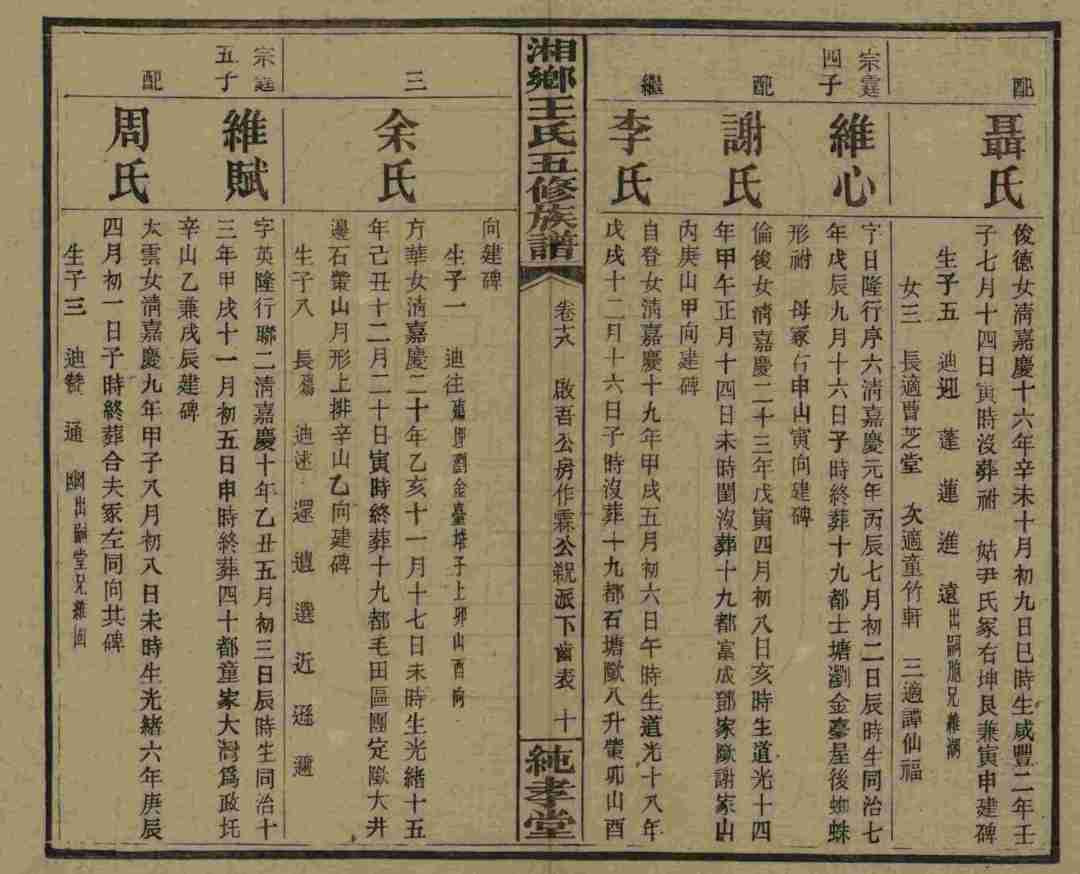 配
聶氏
俊德女淸嘉慶十六年辛未十月初九日巳時生咸豐二年壬
子七月十四日寅時沒葬祔　姑尹氏冢右坤艮兼寅申建碑
生子五　迪迎　蓬　蓮　進　遠出嗣胞兄維
女三　長適曹芝堂　次適童竹軒　三適譚仙福
宗霆四子
維心
字日隆行序六淸嘉慶元年丙辰七月初二日辰時生同治七
年戊辰九月十六日子時終葬十九都士塘瀏金臺屋後蜘蛛
形祔　母冢右申山寅向建碑
配
謝氏
倫俊女淸嘉慶二十三年戊寅四月初八日亥時生道光十四
年甲午正月十四日未時閨沒葬十九都富成鄧家歐謝家山
內庚山甲向建碑
繼
李氏
自登女淸嘉慶十九年甲戌五月初六日午時生道光十八年
戊戌十二月十六日子時沒葬十九都石塘歐八升塋卯山酉
湘鄉王氏五修族譜
卷　啟吾公房作霖公派下齒表　十
純孝堂
向建碑
生子一　迪往葬瀏金臺塘子上卯山酉向
三
余氏
方華女淸嘉慶二十年乙亥十一月十七日未時生光緒十五
年己丑十二月二十日寅時終葬十九都毛田區團定歐大井
邊石塋山月形上排辛山乙向建碑
生子八　長殤　迪述　還　遺　選　近　遜　邇
宗霆五子
維賦
字英隆行聯二淸嘉慶十年乙丑五月初三日辰時生同治十
三年甲戌十一月初五日申時終葬四十都童家大灣爲政圫
辛山乙兼戌辰建碑
配
周氏
大雲女淸嘉慶九年甲子八月初八日未時生光緒六年庚辰
四月初一日子時終葬合夫冢左同向其碑
生子三　迪贊　通　出嗣堂兄維